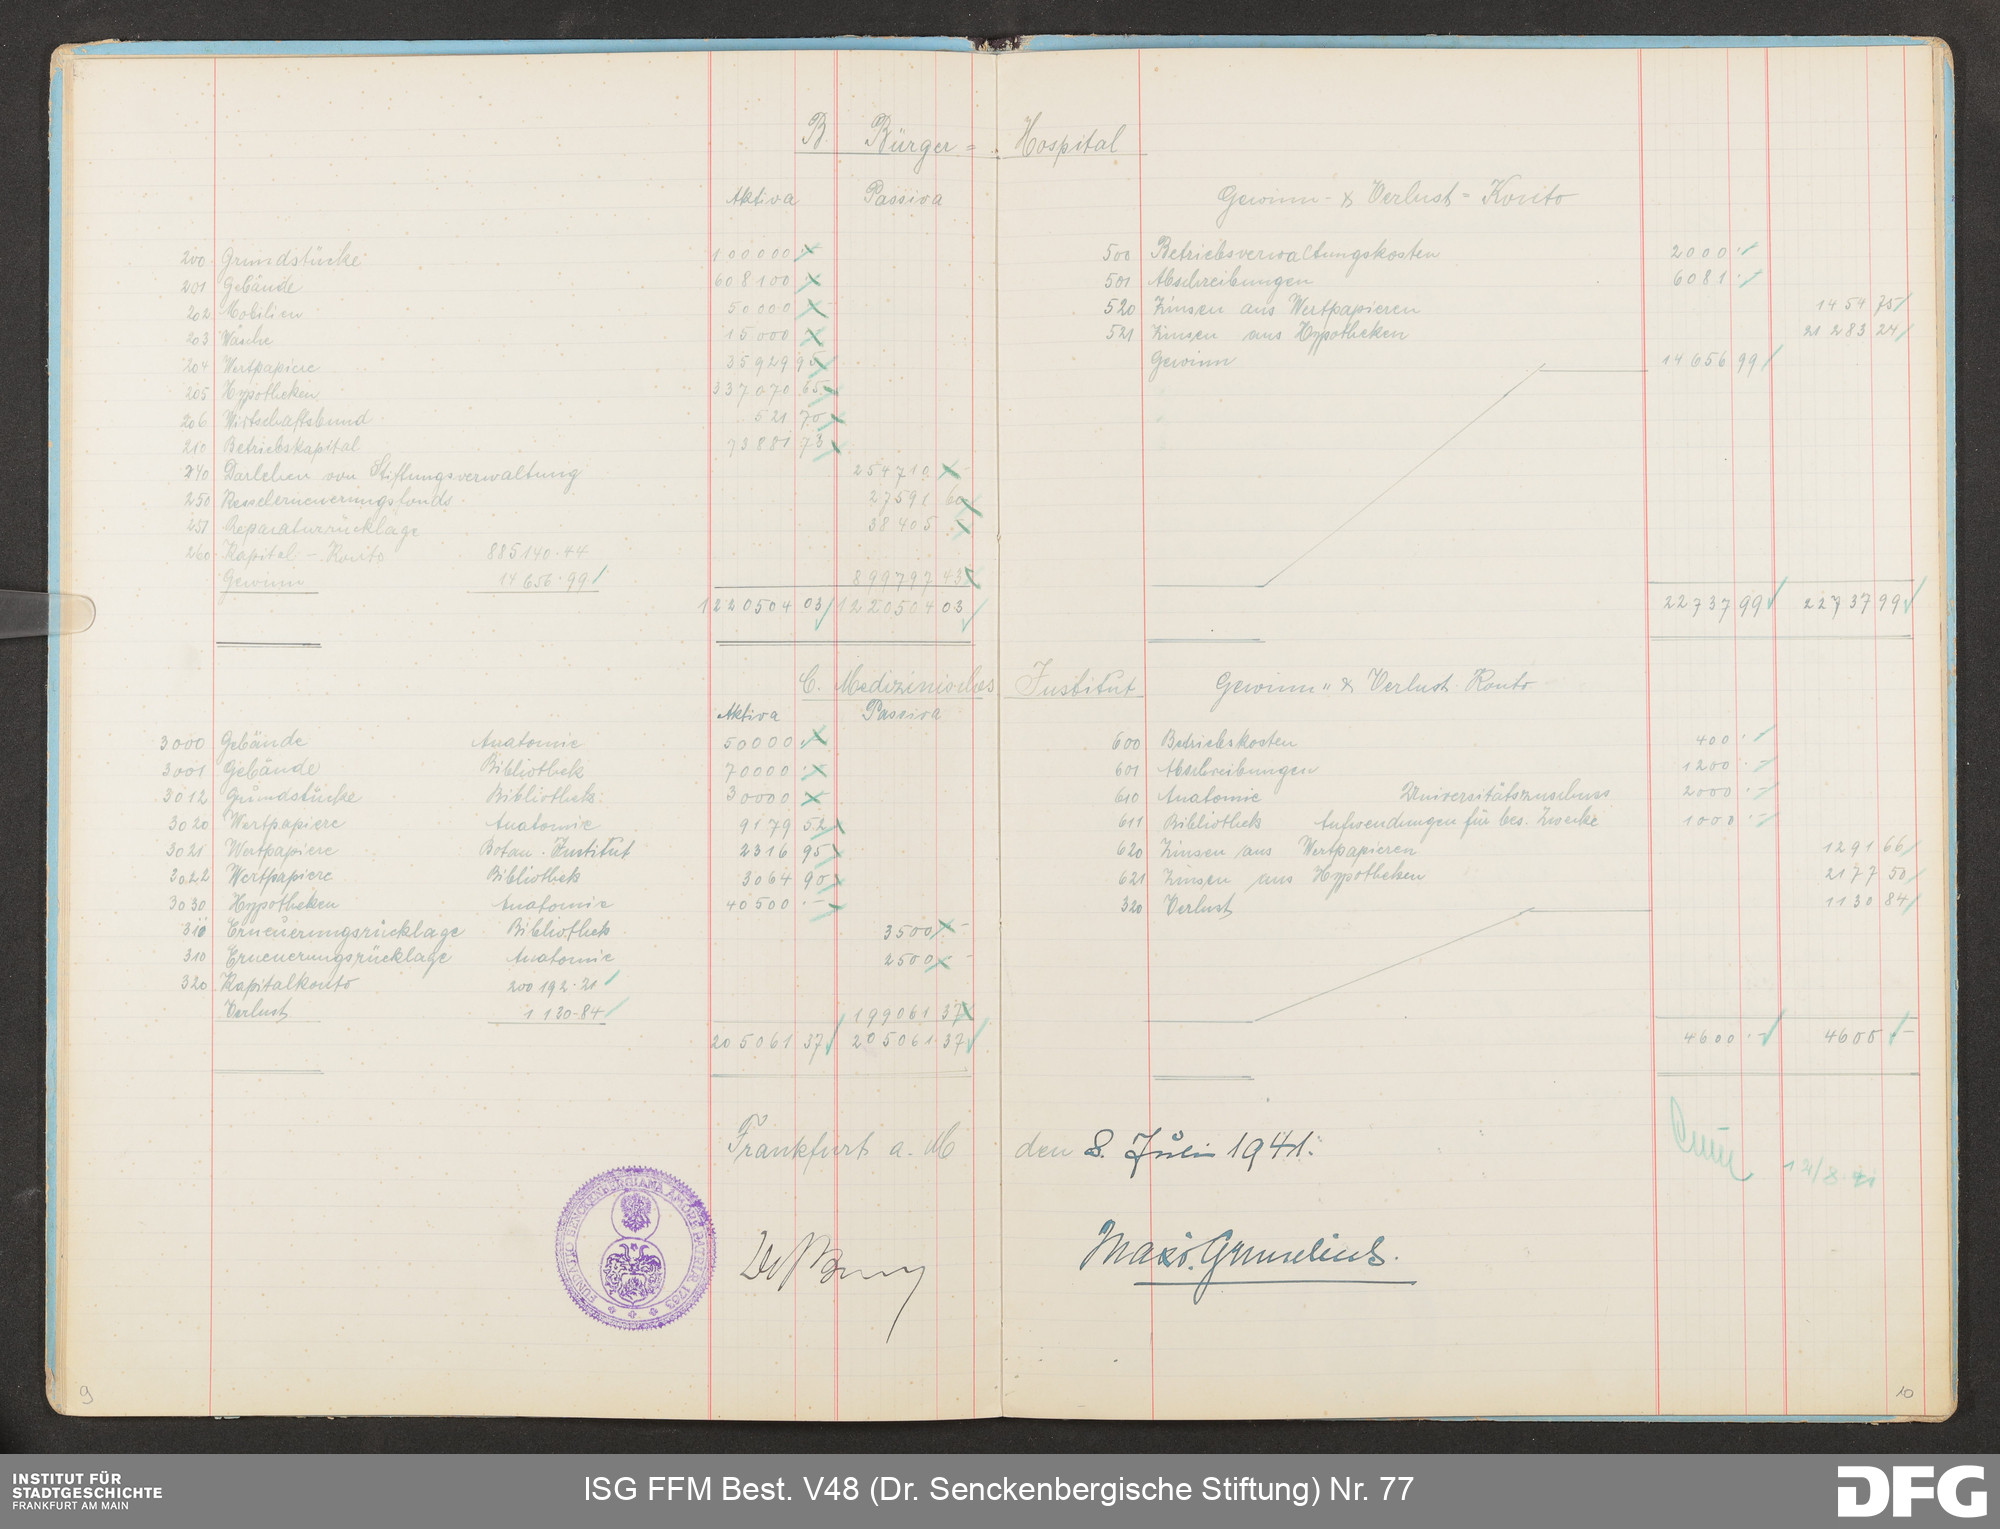 B. Bürger = Hospital
Aktiva Passiva
200 Grundstücke 100000 .-
201 Gebäude 608100 .-
202 Mobilien 50000 .-
203 Wäsche 15000 .-
204 Wertpapiere 35929 95
205 Hypotheken 337070 65
206 Wirtschaftsbund 521 70
210 Betriebskapital 73881 73
240 Darlehen von Stiftungsverwaltung 254710 -
250 Kesselerneuerungsfonds 27591 60
251 Reparaturrücklage 38405 -
260 Kapital - Konto 885140.44
Gewinn 14656.99 899797 43
1220504 03 1220504 03
C. Medizinisches Institut
Aktiva Passiva
3000 Gebäude Anatomie 50000 .-
3001 Gebäude Bibliothek 70000 .-
3012 Grundstücke Bibliothek 30000 -
3020 Wertpapiere Anatomie 9179 52
3021 Wertpapiere Botan. Institut 2316 95
3022 Wertpapiere Bibliothek 3064 90
3030 Hypotheken Anatomie 40500 .-
310 Erneuerungsrücklage Bibliothek 3500 -
310 Erneuerungsrücklage Anatomie 2500 -
320 Kapitalkonto 200192.21
Verlust 1130.84 199061 37
205061 37 205061 37
Frankfurt a. M den 8. Juli 1941.
FUNDATIO SENCKENBERGIANA AMORE PATRIAE 1763
9
Gewinn- & Verlust = Konto
500 Betriebsverwaltungskosten 2000 .-
501 Abschreibungen 6081 .-
520 Zinsen aus Wertpapieren 1454 75
521 Zinsen aus Hypotheken 21283 24
Gewinn 14656 99
22737 99 22737 99
Gewinn " & Verlust Konto
600 Betriebskosten 400 .-
601 Abschreibungen 1200 .-
610 Anatomie Universitätszuschuss 2000 .-
611 Bibliothek Aufwendungen für bes. Zwecke 1000 .-
620 Zinsen aus Wertpapieren 1291 66
621 Zinsen aus Hypotheken 2177 50
320 Verlust 1130 84
4600 .- 4600 -
10
INSTITUT FÜR
STADTGESCHICHTE
FRANKFURT AM MAIN
ISG FFM Best. V48 (Dr. Senckenbergische Stiftung) Nr. 77
DFG